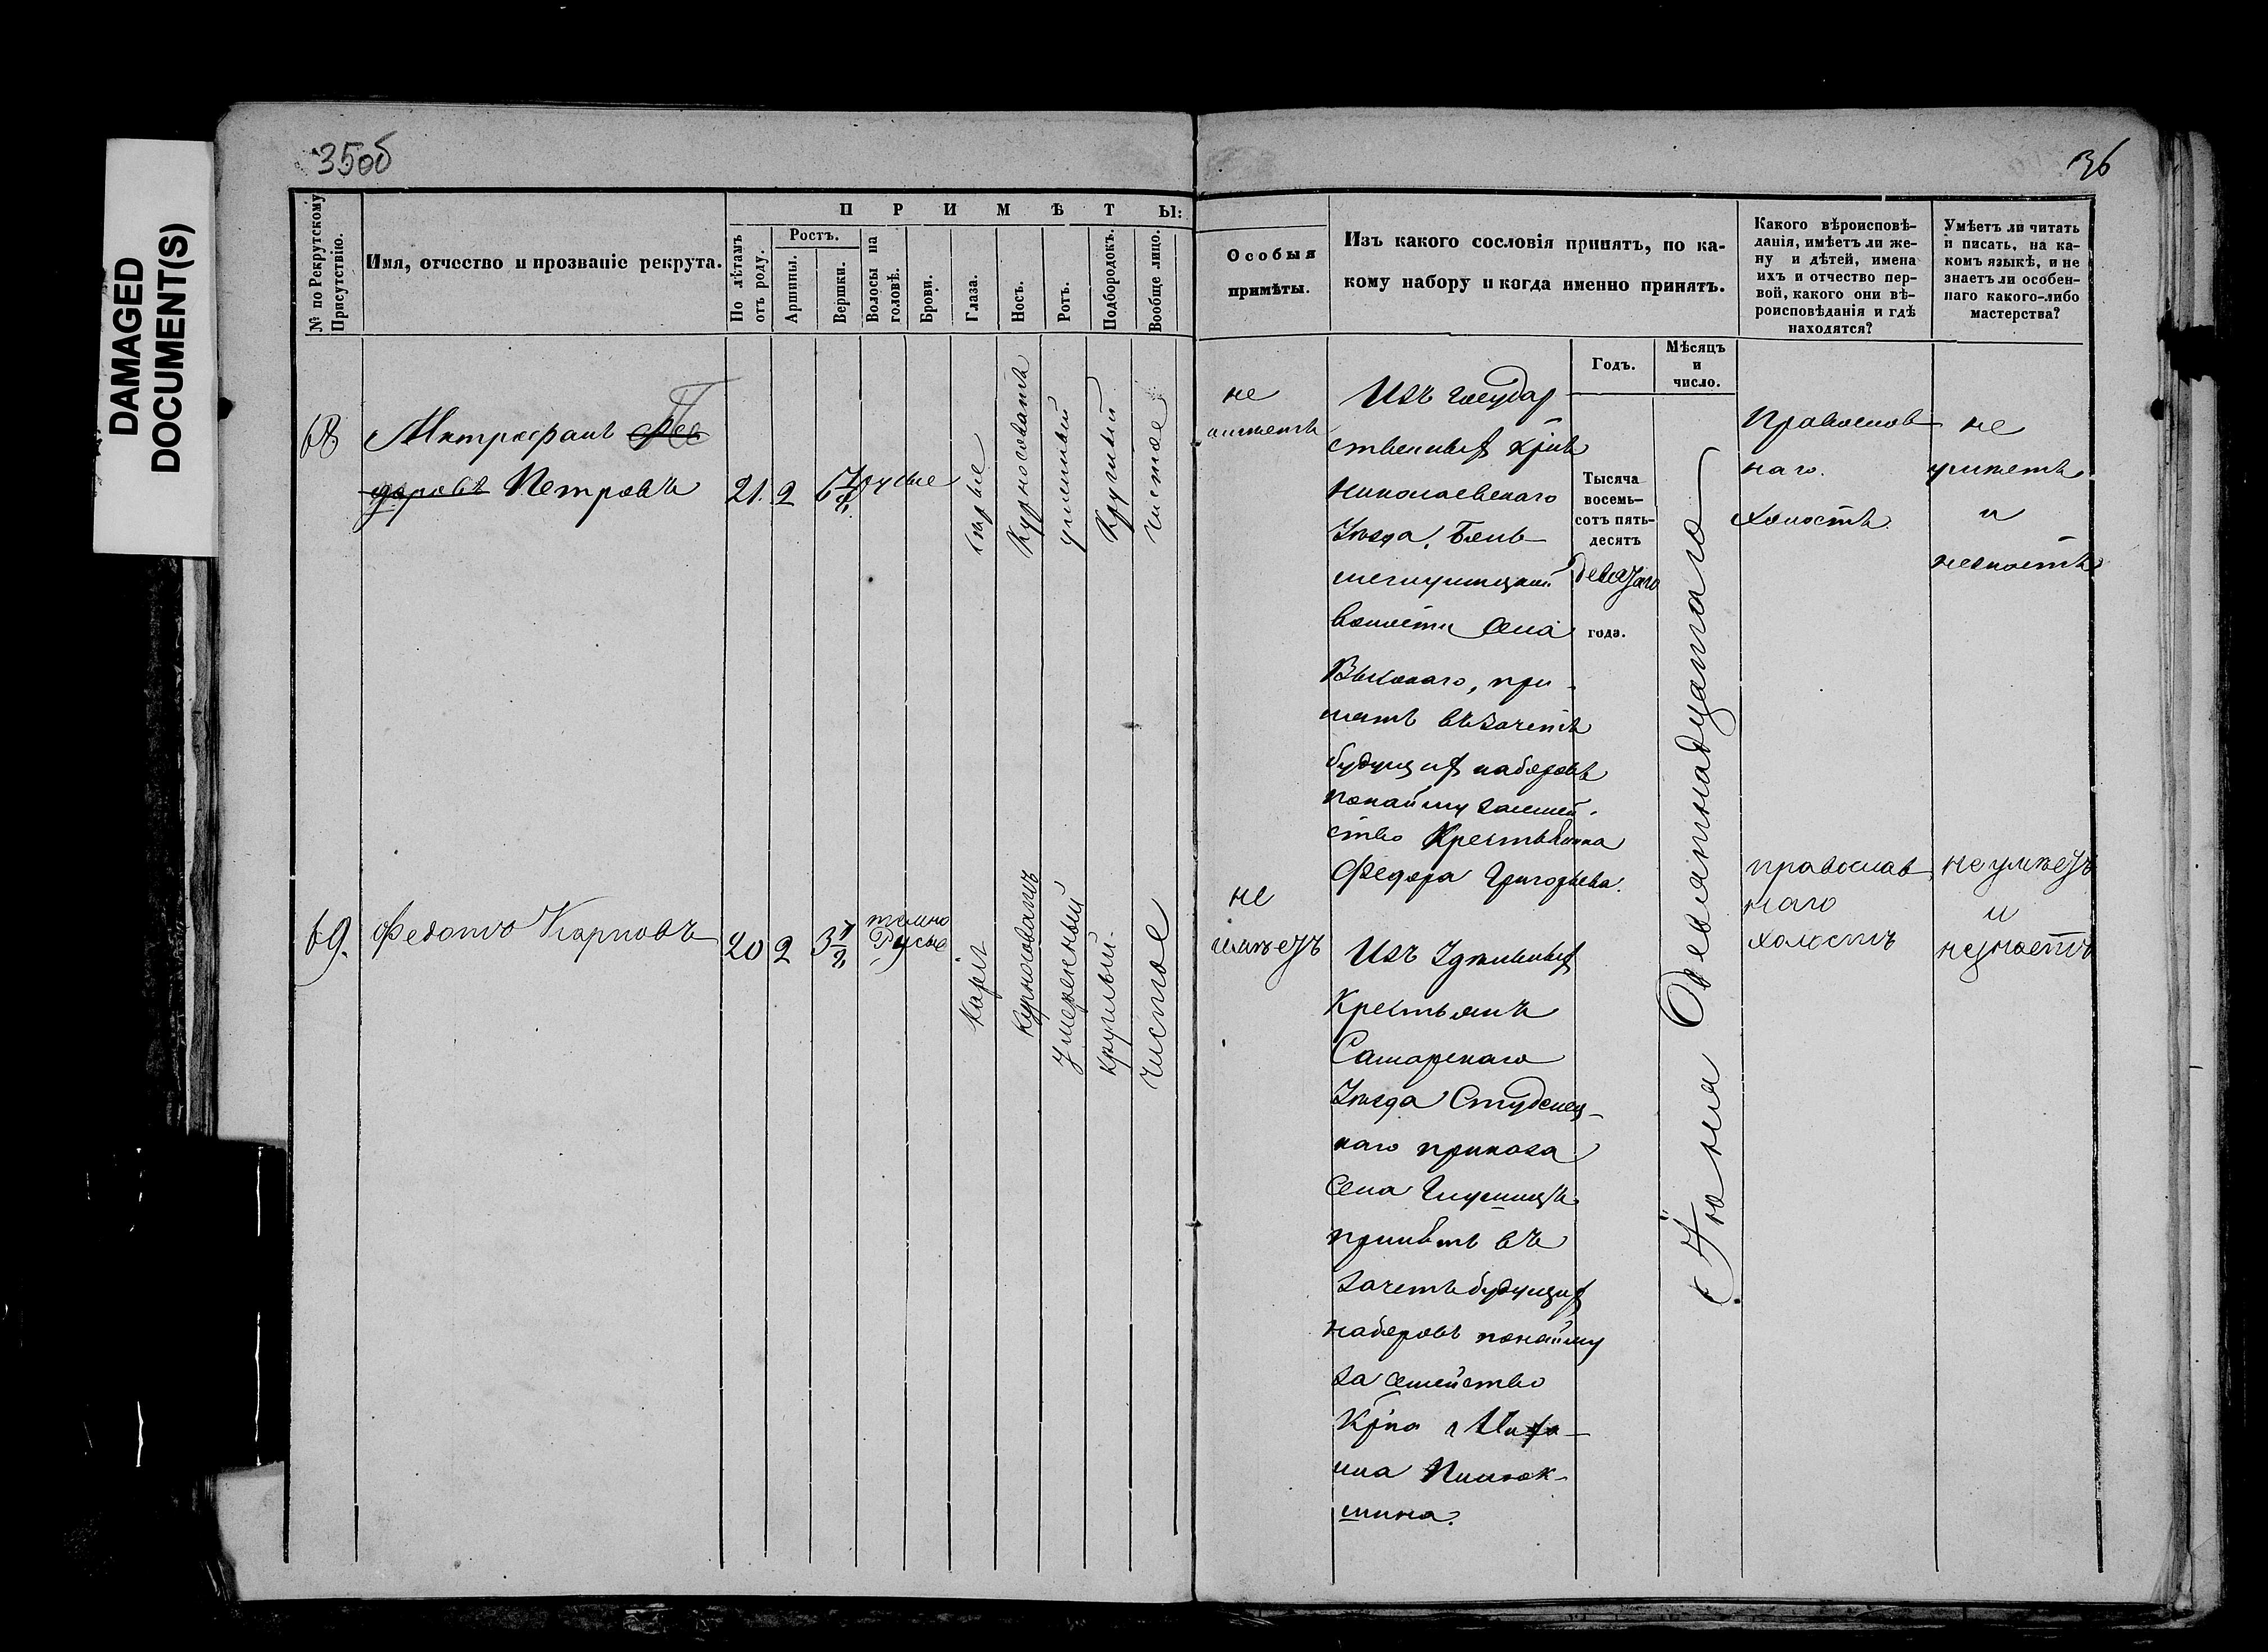 DAMAGED
DOCUMENT(S)
35об
36
№ по Рекрутскому
Присутствію.
Имя, отчество и прозваніе рекрута.
ПРИМѢТЫ:
По лѣтамъ
отъ роду.
Ростъ.
Аршины.
Вершки.
Волосы на
головѣ.
Брови.
Глаза.
Носъ.
Ротъ.
Подбородокъ.
Вообще лицо.
Особыя
примѣты.
Изъ какого сословія принятъ, по ка-
кому набору и когда именно принятъ.
Годъ.
Мѣсяцъ
и
число.
Какого вѣроисповѣ-
данія, имѣетъ ли же-
ну и дѣтей, имена
ихъ и отчество пер-
вой, какого они вѣ-
роисповѣданія и гдѣ
находятся?
Умѣетъ ли читать
и писать, на ка-
комъ языкѣ, и не
знаетъ ли особен-
наго какого-либо
мастерства?
68
Митрофанъ Фео
доровъ Петровъ
21.
2
6 7/8
русые
сѣрые
Курносоватъ
умѣренный
Круглый
чистое
не
имѣетъ
Изъ государ
ственныхъ крнъ
Николаевскаго
Уѣзда, Боль
шеглушицкой
волости села
при-
нятъ въ зачетъ
будущихъ наборовъ
по найму за семей-
ство Крестьянина
Федора Григорьева.
Тысяча
восемь-
сотъ пять-
десятъ
девятаго
года.
Іюня Девятнадцатаго
Православ
наго.
холостъ
не
умѣетъ
и
незнаетъ
69.
Федотъ Карповъ
20
2
3 7/8
темно
Русые
Карія
Курносоватъ
Умеренный
круглый.
Чистое
не
имѣетъ
Изъ Удѣльныхъ
Крестьянъ
Самарскаго
Уѣзда Студенец-
каго приказа
Села Глушицъ
принятъ въ
зачетъ будущихъ
наборовъ по найму
за семейство
Крна
православ
наго
холостъ
не умѣетъ
и
не знаетъ